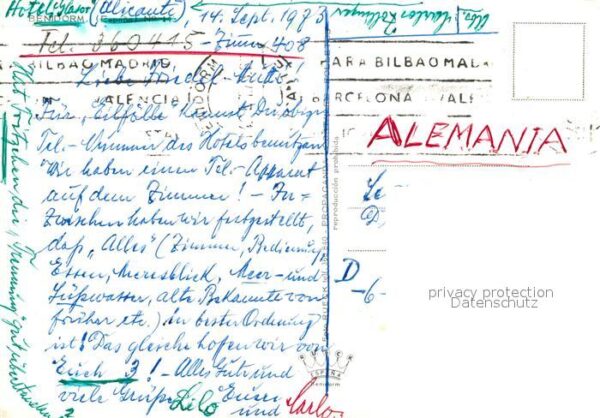 Hotel
(Alicante), 14. Sept. 1973
BENIDORM
Tel. 360415 - Zimm. 408
ARA BILBAO MAD
BILBAO MADRID,
Liebe
VALENCIA
BARCELONA VALE
BENIDORM
Für „Eilfälle kannst Du obige
Tel.-Nummer des Hotels benützen
Wir haben einen Tel.-Apparat
auf dem Zimmer! - In-
zwischen haben wir festgestellt,
daß „Alles" (Zimmer, Bedienung,
Essen, Meeresblick, Meer- und
Süßwasser, alte Bekannte von
früher etc.) in bester Ordnung
ist! Das gleiche hoffen wir von
Euch 3! - Alles Gute und
viele Grüße Lilo Euer
und Carlo
Hat Fritzchen die „Trennung" gut überstanden?
ALEMANIA
reproducción prohibida
D
-6-
privacy protection
Datenschutz